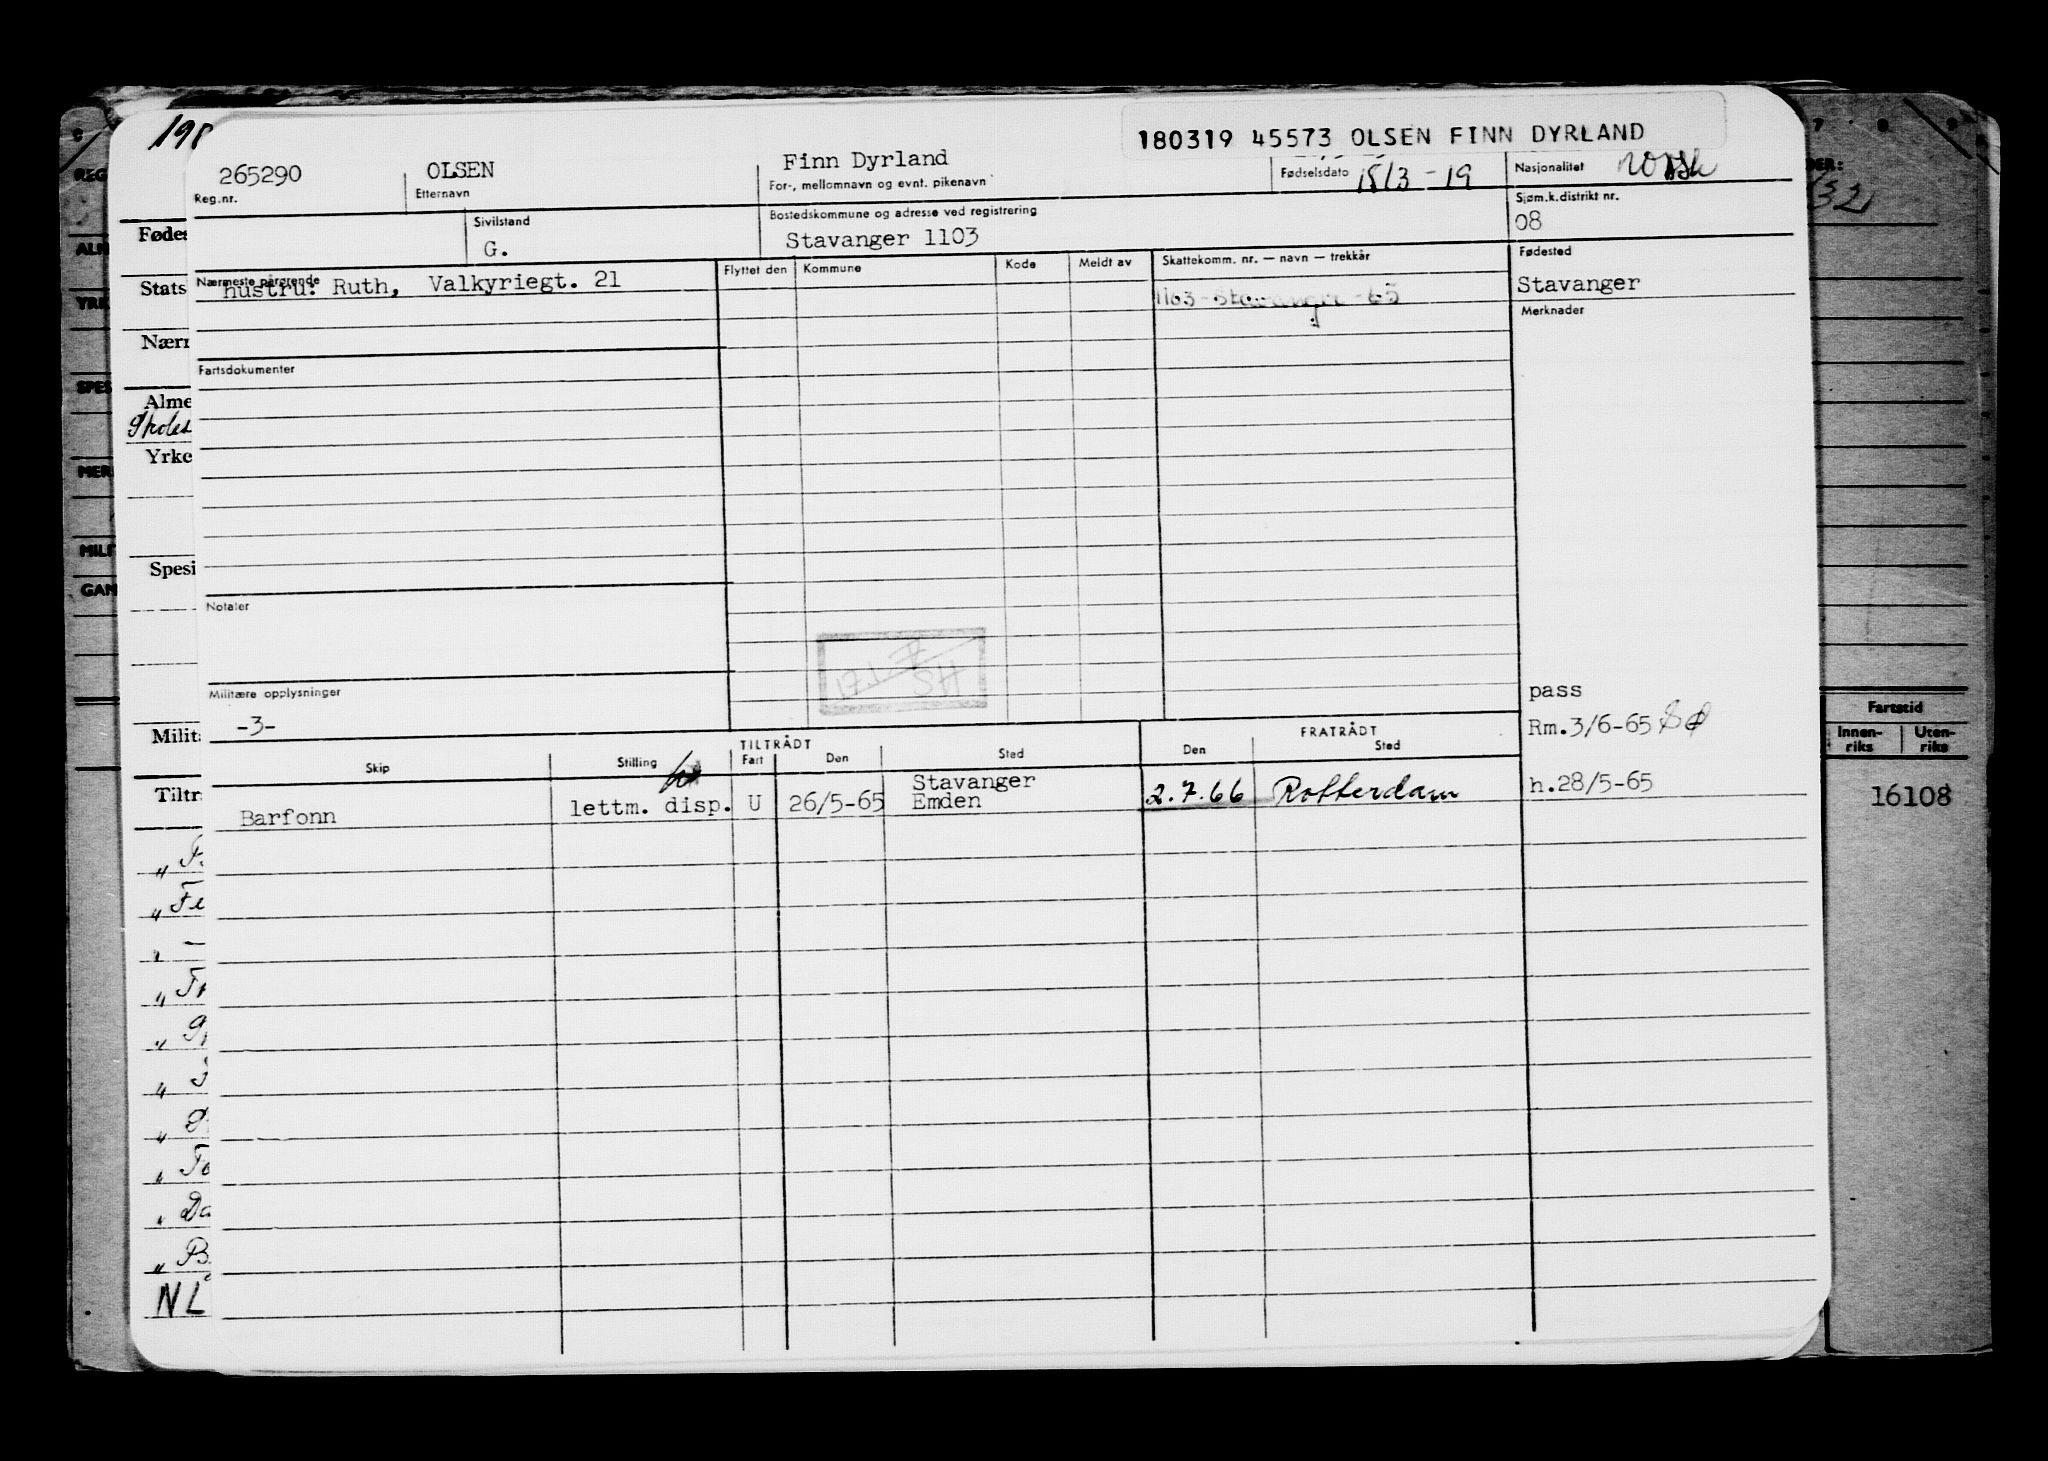 198
180319 45573 OLSEN FINN DYRLAND
265290 OLSEN Finn Dyrland
Reg.nr. Etternavn For-, mellomnavn og evnt. pikenavn Fødselsdato 18/3-19 Nasjonalitet norsk
Sivilstand Bostedskommune og adresse ved registrering Sjøm.k.distrikt nr.
G. Stavanger 1103 08
Nærmeste pårørende Flyttet den Kommune Kode Meldt av Skattekomm. nr. — navn — trekkår Fødested
hustru: Ruth, Valkyriegt. 21 1103-Stavanger-65 Stavanger
Merknader
Fartsdokumenter
Notater
Militære opplysninger
-3-
pass
Rm.3/6-65
TILTRÅDT FRATRÅDT
Skip Stilling Fart Den Sted Den Sted
Barfonn lettm. disp. U 26/5-65 Stavanger
Emden 2.7.66 Rotterdam h.28/5-65
Fødes
Stats
Nærr
Alme
Yrke
Spesi
Milita
Tiltr
" Fe
" Da
NL
REG
ALM
YRK
SPES
MER
MILI
GAN
7 8 9
DER:
Fartstid
Innen-
riks
Uten-
riks
16108